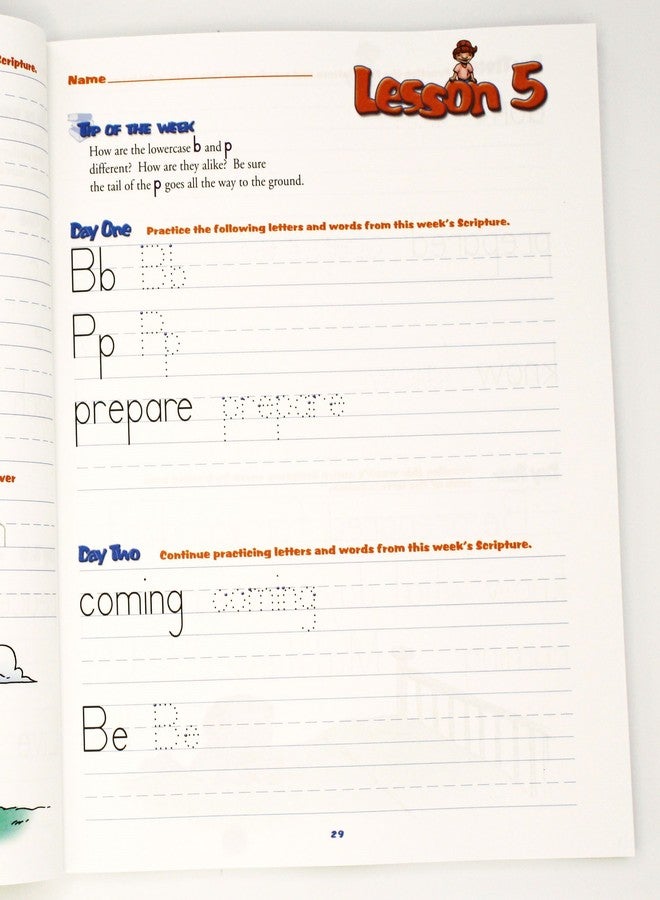 Scripture.
ver
Name
Lesson 5
Tip of the Week
How are the lowercase b and p
different? How are they alike? Be sure
the tail of the p goes all the way to the ground.
Day One Practice the following letters and words from this week's Scripture.
Bb Bb
Pp Pp
prepare prepare
Day Two Continue practicing letters and words from this week's Scripture.
coming coming
Be Be
29